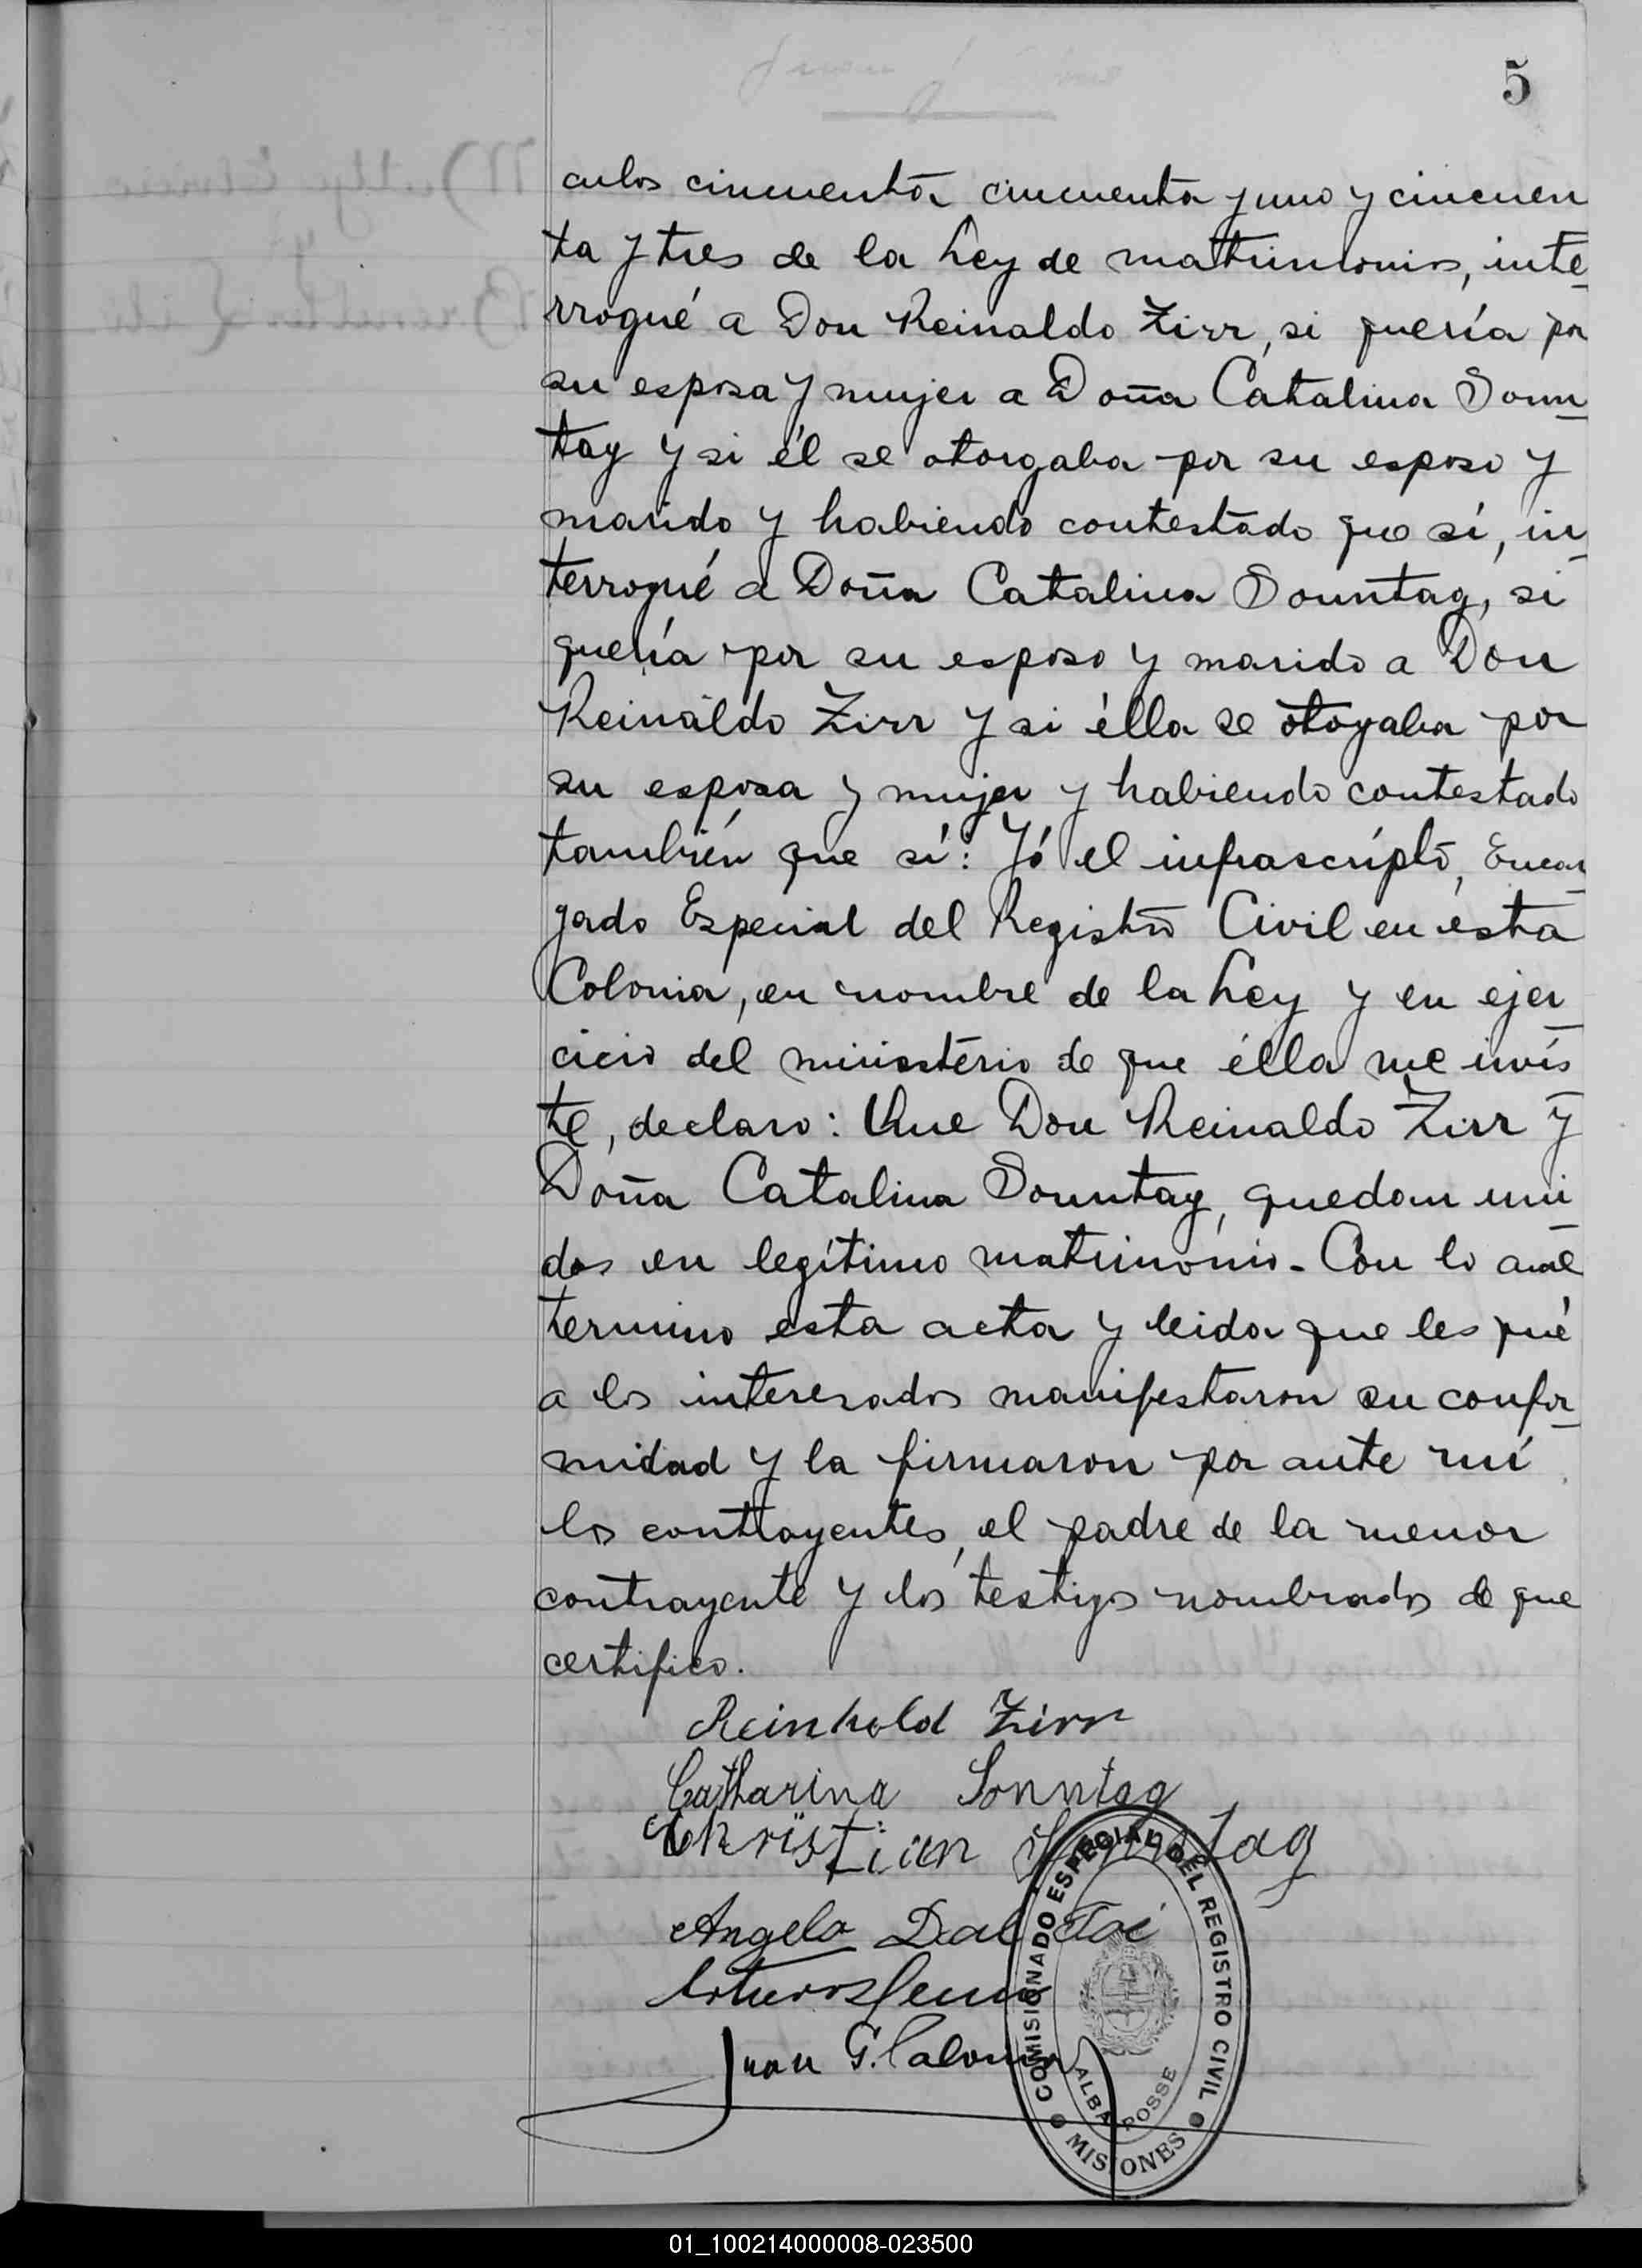 5
culos cincuenta cincuenta y uno y cincuen
ta y tres de la Ley de matrimonios, inte
rrogué a Don Reinaldo Zirr, si quería por
su esposa y mujer a Doña Catalina Sonn
tag y si él se otorgaba por su esposo y
marido y habiendo contestado que sí, in
terrogué a Doña Catalina Sonntag, si
quería por su esposo y marido a Don
Reinaldo Zirr y si élla se otogaba por
su esposa y mujer y habiendo contestado
también que sí: Yó el infrascripto, Encar
gado Especial del Registro Civil en esta
Colonia, en nombre de la Ley y en ejer
cicio del ministerio de que élla me invis
te, declaro: Que Don Reinaldo Zirr y
Doña Catalina Sonntag, quedan uni
dos en legítimo matrimonio. Con lo cual
termino esta acta y leida que les fué
a los interesados manifestaron su confor
midad y la firmaron por ante mí
los contrayentes, el padre de la menor
contrayente y los testigos nombrados de que
certifico.
Reinhold Zirr
Catharina Sonntag
Christian Sonntag
Angelo Dal
Juan G.
COMISIONADO ESPECIAL DEL REGISTRO CIVIL
ALBA POSSE
MISIONES
01_100214000008-023500